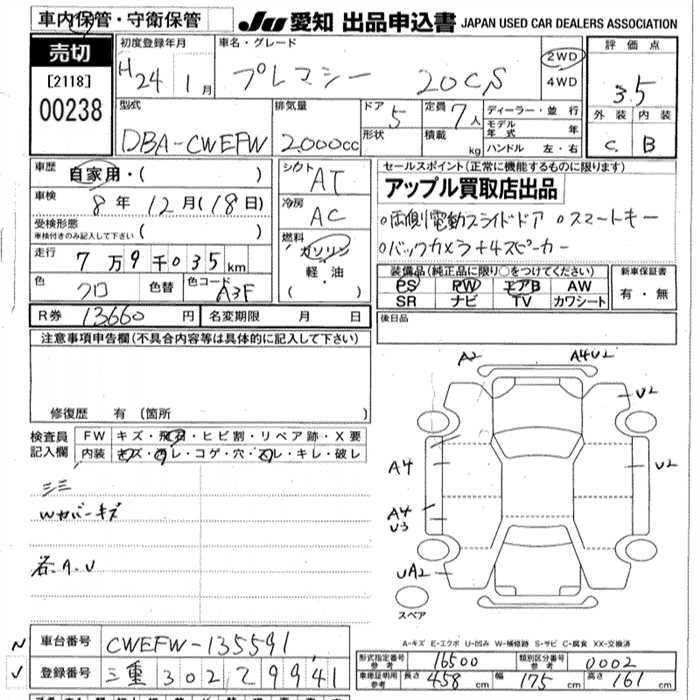 車内保管・守衛保管
JU 愛知 出品申込書 JAPAN USED CAR DEALERS ASSOCIATION
売切
[2118]
00238
初度登録年月
H24 1月
車名・グレード
プレマシー 20CS
2WD
4WD
評価点
3.5
外装 内装
C B
型式
DBA-CWEFW
排気量
2,000cc
ドア 5
形状
定員 7人
積載 kg
ディーラー・並行
モデル年式 年
ハンドル 左・右
車歴 自家用・( )
車検 8年12月(18日)
受検形態
車検付きのみ記入して下さい ( )
走行 7万9千035km
色 クロ 色替 色コード A3F
シフト AT
冷房 AC
燃料
ガソリン
軽・油
( )
セールスポイント(正常に機能するものに限ります)
アップル買取店出品
○両側電動スライドドア ○スマートキー
○バックカメラ+4スピーカー
装備品(純正品に限り○をつけてください)
PS PW エアB AW
SR ナビ TV カワシート
新車保証書
有・無
R券 13660円 名変期限 月 日
後日品
注意事項申告欄(不具合内容等は具体的に記入して下さい)
修復歴 有 (箇所 )
検査員記入欄
FW キズ・飛石・ヒビ割・リペア跡・X要
内装 キズ・汚レ・コゲ・穴・スレ・キレ・破レ
三ミ
Wカバーキズ
各A.U
A2 A4U2
U2
A4 U2
A4
U3
UA2
スペア
A-キズ E-エクボ U-凹み W-補修跡 S-サビ C-腐食 XX-交換済
車台番号 CWEFW-135591
登録番号 三重 302 て 9941
形式指定番号 参考 16500 類別区分番号 参考 0002
車庫証明用 参考 長さ 458cm 幅 175cm 高さ 161cm